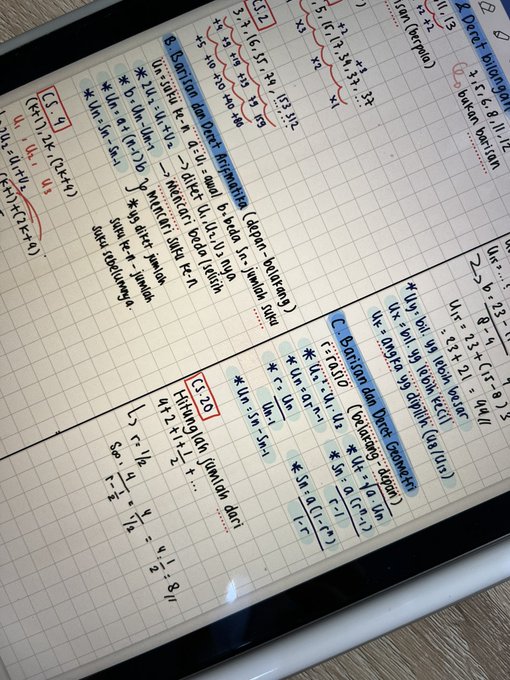 & Deret bilangan
7, 5, 6, 8, 11, 12
bukan barisan
11, 13
+2 +2
isan (berpola)
5, 15, 17, 34, 37, 37
+2
+3
x3
x2
x1
3, 7, 16, 35, 74, 153, 312
+4 +9 +19 +39 +79 +159
+5 +10 +20 +40 +80
B. Barisan dan Deret Aritmatika (depan-belakang)
Un = suku ke-n a = U1 = awal b = beda Sn = jumlah suku
* 2U2 = U1 + U3 → diket U1, U2, U3 nya
* b = Un - Un-1 → mencari beda/selisih
* Un = a + (n-1)b } mencari suku ke-n
* Un = Sn - Sn-1 * yg diket jumlah
suku ke-n - jumlah
suku sebelumnya.
CS. 9
U1, U2, U3
(k+1), 2k, (2k+4)
2U2 = U1 + U3
(k+1) + (2k+4)
U15 = ...?
→ b = 23 - 11
8 - 4
U15 = 23 + (15-8) 3
= 23 + 21 = 44 //
* Uy = bil. yg lebih besar
Ux = bil. yg lebih kecil
Uk = angka yg dipilih (U8/U15)
C. Barisan dan Deret Geometri
(belakang-depan)
r = rasio
* U2² = U1 . U3
* Un = ar^n-1
* r = Un
Un-1
* Un = Sn - Sn-1
* Ut = √a . Un
* Sn = a (r^n - 1)
r - 1
* Sn = a (1 - r^n)
1 - r
CS. 20
Hitunglah jumlah dari
4 + 2 + 1 + 1/2 + ...
↳ r = 1/2